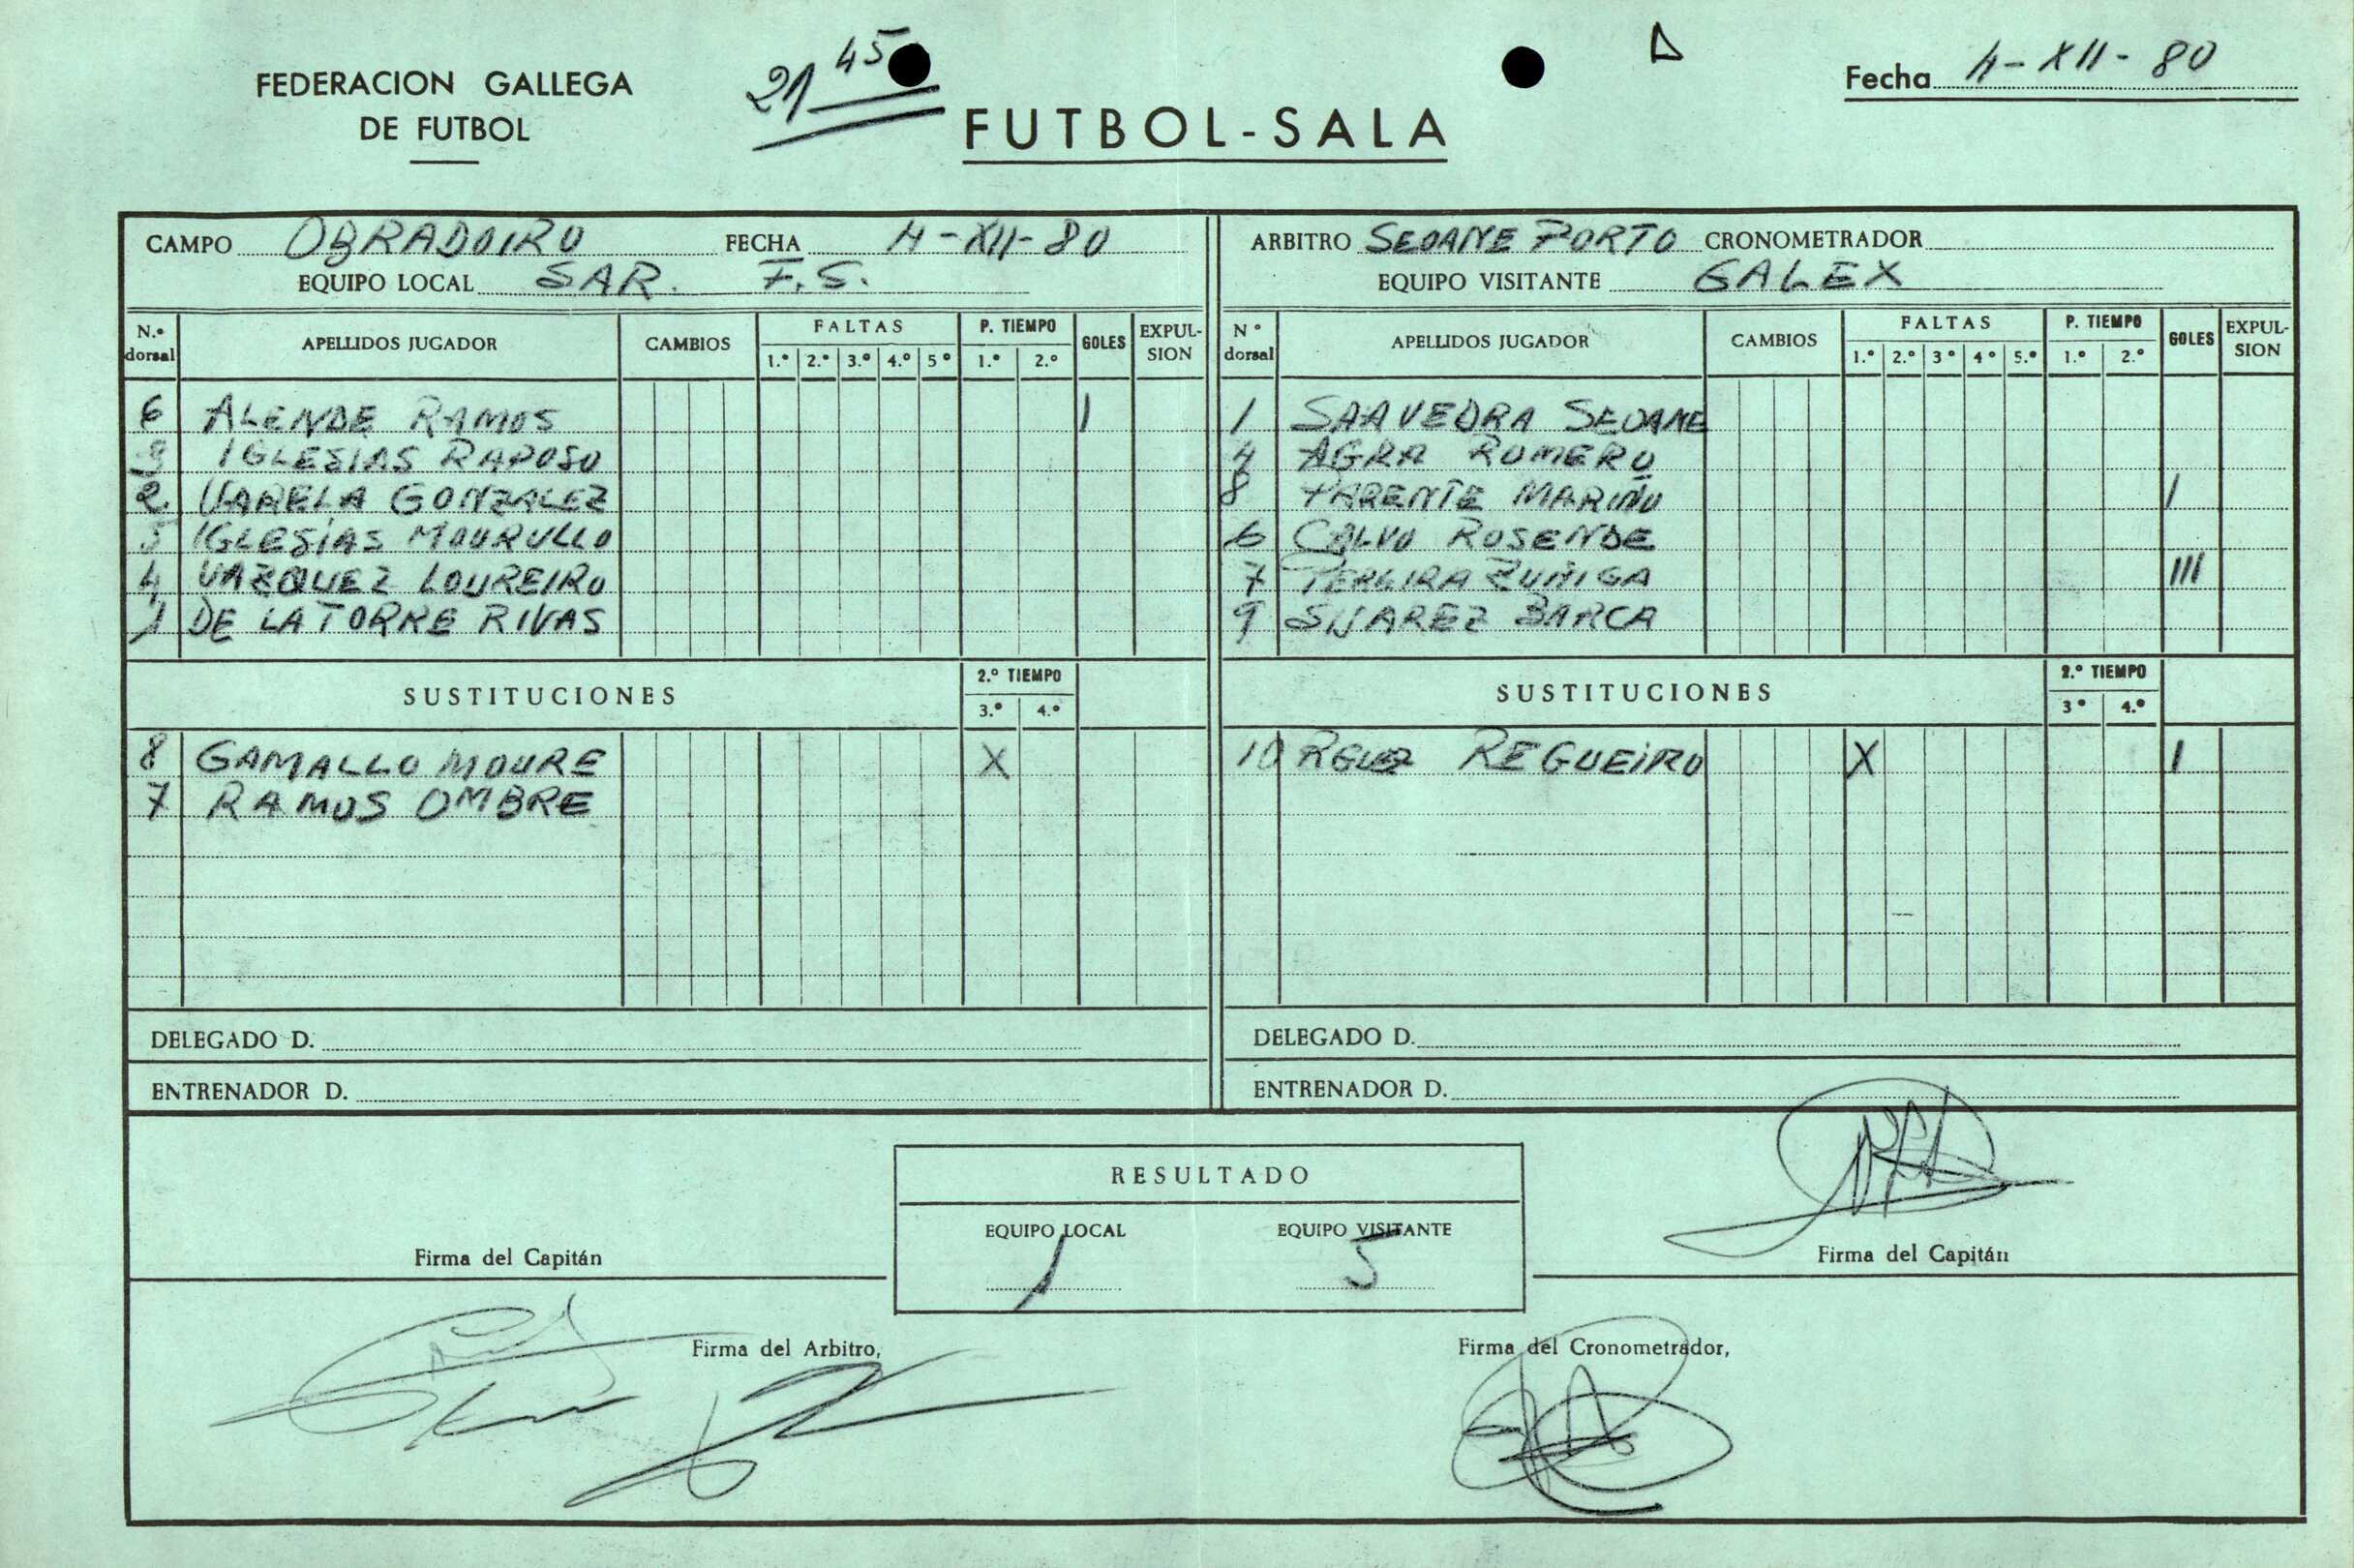 FEDERACION GALLEGA
DE FUTBOL
21 45
FUTBOL-SALA
Fecha 4-XII-80
CAMPO OBRADOIRO FECHA 4-XII-80
EQUIPO LOCAL SAR. F.S.
ARBITRO SEOANE PORTO CRONOMETRADOR
EQUIPO VISITANTE GALEX
N.º dorsal APELLIDOS JUGADOR CAMBIOS FALTAS 1.º 2.º 3.º 4.º 5º P. TIEMPO 1.º 2.º GOLES EXPULSION
6 ALENDE RAMOS I
IGLESIAS RAPOSO
2 VARELA GONZALEZ
5 IGLESIAS MOURULLO
4 VAZQUEZ LOUREIRO
1 DE LA TORRE RIVAS
SUSTITUCIONES 2.º TIEMPO 3.º 4.º
8 GAMALLO MOURE X
7 RAMOS OMBRE
DELEGADO D.
ENTRENADOR D.
Nº dorsal APELLIDOS JUGADOR CAMBIOS FALTAS 1.º 2.º 3º 4º 5.º P. TIEMPO 1.º 2.º GOLES EXPULSION
1 SAAVEDRA SEOANE
4 AGRA ROMERO
8 PARENTE MARIÑO I
6 CALVO ROSENDE
7 PEREIRA ZUÑIGA III
9 SUAREZ BARCA
SUSTITUCIONES 2.º TIEMPO 3º 4.º
10 RGUEZ REGUEIRO X I
DELEGADO D.
ENTRENADOR D.
RESULTADO
EQUIPO LOCAL EQUIPO VISITANTE
1 5
Firma del Capitán
Firma del Capitán
Firma del Arbitro,
Firma del Cronometrador,